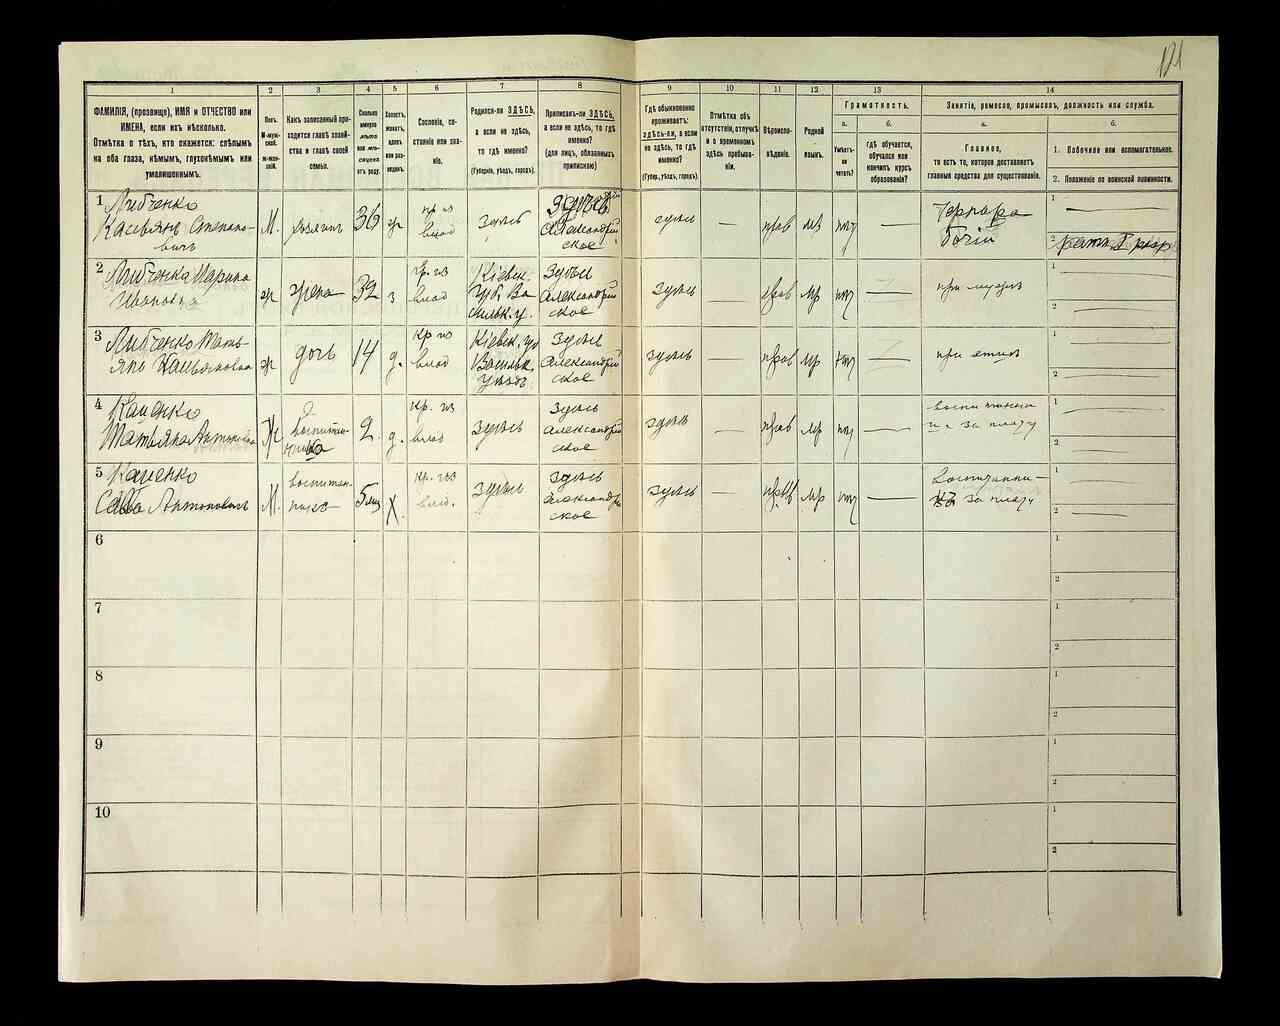 121
1 2 3 4 5 6 7 8 9 10 11 12 13 14
ФАМИЛІЯ, (прозвище), ИМЯ и ОТЧЕСТВО или
ИМЕНА, если ихъ нѣсколько.
Отмѣтка о тѣхъ, кто окажется: слѣпымъ
на оба глаза, нѣмымъ, глухонѣмымъ или
умалишеннымъ.
Полъ.
М-муж-
ской.
Ж-жен-
скій.
Какъ записанный при-
ходится главѣ хозяй-
ства и главѣ своей
семьи.
Сколько
минуло
лѣтъ
или мѣ-
сяцевъ
отъ роду.
Холостъ,
женатъ,
вдовъ
или раз-
веденъ.
Сословіе, со-
стояніе или зва-
ніе.
Родился-ли ЗДѢСЬ,
а если не здѣсь,
то гдѣ именно?
(Губернія, уѣздъ, городъ).
Приписанъ-ли ЗДѢСЬ,
а если не здѣсь, то гдѣ
именно?
(для лицъ, обязанныхъ
припискою)
Гдѣ обыкновенно
проживаетъ:
здѣсь-ли, а если
не здѣсь, то гдѣ
именно?
(Губер., уѣздъ, городъ).
Отмѣтка объ
отсутствіи, отлучкѣ
и о временномъ
здѣсь пребыва-
ніи.
Вѣроиспо-
вѣданіе.
Родной
языкъ.
Грамотность.
а.
Умѣетъ-
ли
читать?
б.
гдѣ обучается,
обучался или
кончилъ курсъ
образованія?
Занятіе, ремесло, промыселъ, должность или служба.
а.
Главное,
то есть то, которое доставляетъ
главныя средства для существованія.
б.
1. Побочное или вспомогательное.
2. Положеніе по воинской повинности.
1 Либченко
Касьянъ Степано-
вичъ
М. хозяинъ 36 ж кр из влад здѣсь здѣсь Александрій
ское
здѣсь — прав мр нет — Чернора
бочій
1 —
2 ратн. I разр
2 Либченка Марина
Ивановна
ж жена 32 з кр. из влад Кіевск.
губ. Ва
сильк. у.
здѣсь
Александрій
ское
здѣсь — прав мр нет — при мужѣ
1 —
2 —
3 Либченко Тать-
яна Касьяновна
ж дочь 14 д. кр из влад Кіевск. гу
Васильк.
уѣздъ
здѣсь
Александрій
ское
здѣсь — прав мр нет — при отцѣ
1 —
2 —
4 Каценко
Татьяна Антоновна
Ж воспитан-
ница
2. д. кр. из влад здѣсь здѣсь
Александрій
ское
здѣсь — прав мр нет воспитанни
ца за плату
1 —
2 —
5 Каценко
Савва Антоновичъ
М. воспитан-
никъ
5 мц х кр. из влад. здѣсь здѣсь
Александрій
ское
здѣсь — прав мр нет — воспитанни-
къ за плату
1 —
2 —
6 1
2
7 1
2
8 1
2
9 1
2
10 1
2